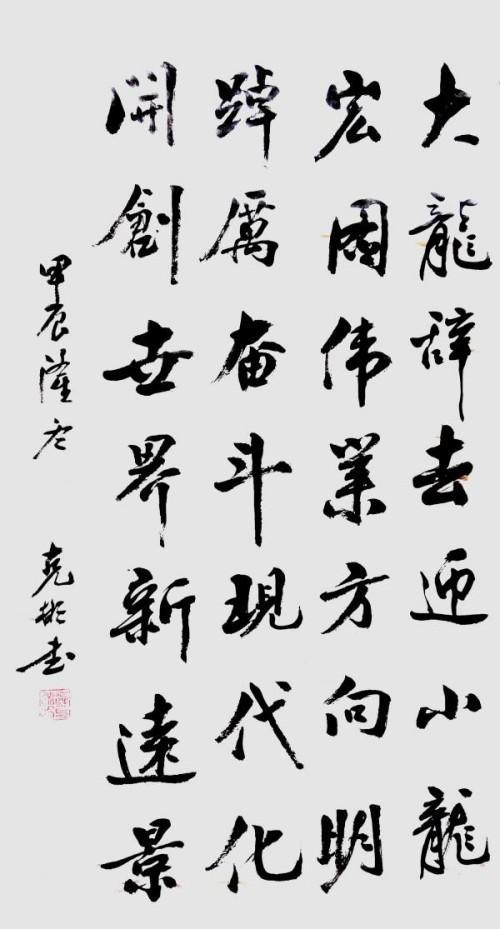 大龍辞去迎小龍
宏圖伟業方向明
踔厲奋斗現代化
開創世界新遠景
甲辰隆冬
克彬书